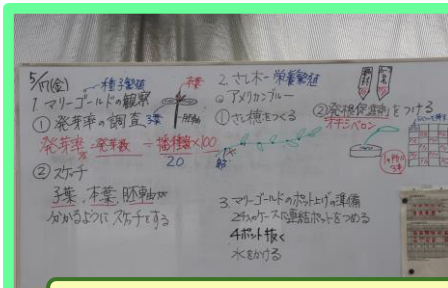 5/17(金)
種子繁殖
1. マリーゴールドの観察
① 発芽率の調査
発芽率=発芽数÷播種数×100
%
20
本葉
子葉
胚軸
② スケッチ
子葉、本葉、胚軸が
分かるようにスケッチする
2. さし木―栄養繁殖
◎アメリカンブルー
① さし穂をつくる
② 発根促進剤をつける
オキシベロン
3. マリーゴールドのポット上げの準備
24穴のケースに連結ポットをつめる
4ポット抜く
水をかける